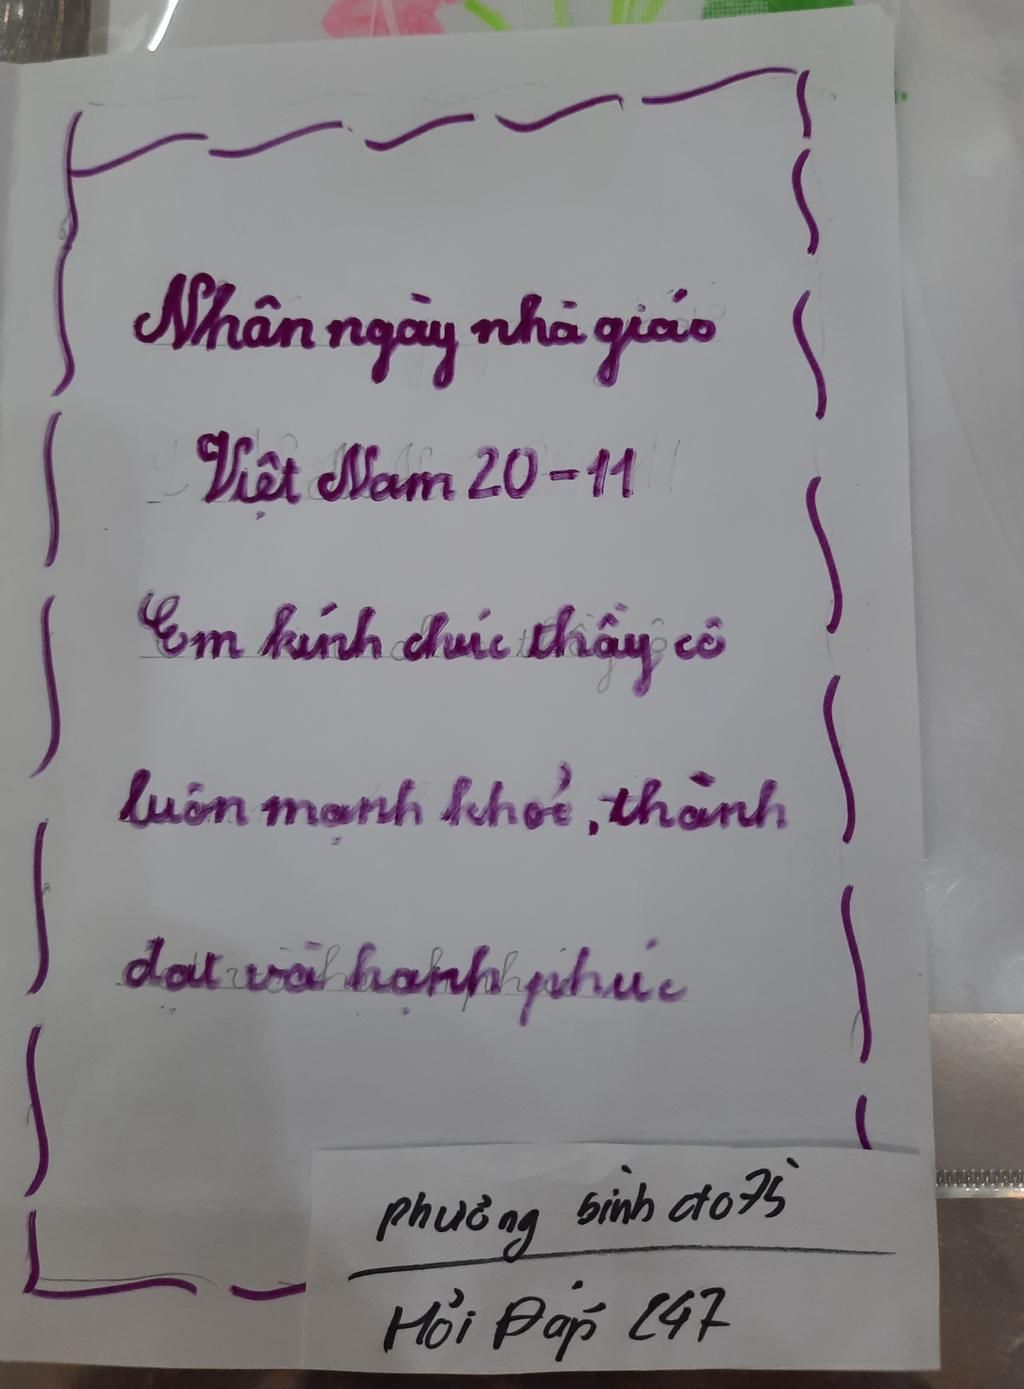 Nhân ngày nhà giáo
Việt Nam 20-11
Em kính chúc thầy cô
luôn mạnh khoẻ, thành
đạt và hạnh phúc
Hỏi Đáp 247